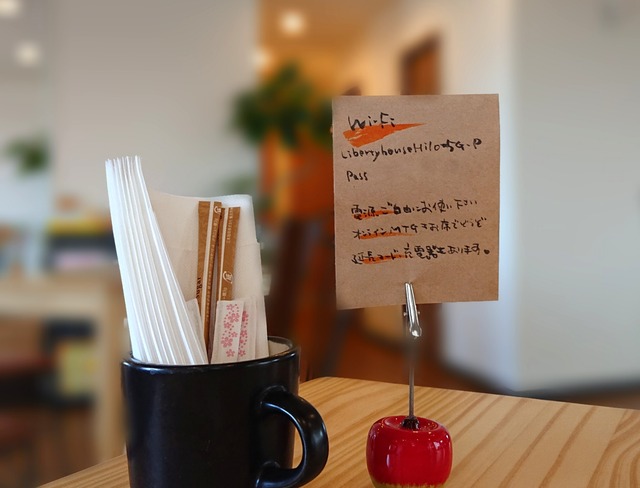 Wi-Fi
LibertyhouseHilo5G-P
Pass
電源ご自由にお使い下さい
オンラインMTGもお席でどうぞ
延長コード、充電器もあります。